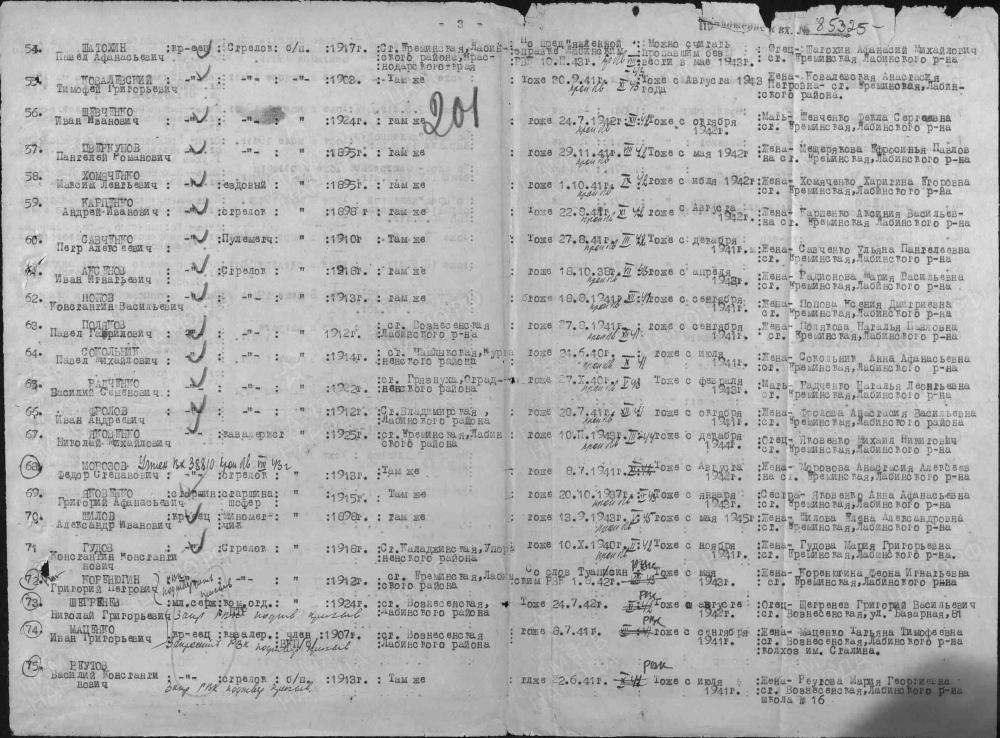 - 3 -
вх. № 85325-
54. ШАТОХИН :кр-еец :Стрелок: б/п. :1917г. :Ст. Еремин­ская, Лабин- :По предъявленной : Можно считать :Отец- Шатохин Афанасий Михайлович
Павел Афанасьевич ского района, Крас- справке Лабинским пропавшим без : ст. Ереминская Лабинского р-на
нодарского края РВК 10.П.43г. вести в мае 1943г.
201
55. КОВАЛЕВСКИЙ -"- -"- -"- 1902. : Там же Тоже 20.9.41г. Тоже с Августа 1943 Жена- Ковалевская Анастасия
Тимофей Григорьевич года Петровна- ст. Ереминская, Лабин-
ского района.
56. ШЕВЧЕНКО -"- :1924г. : там же : тоже 24.7.42г. Тоже с октября :Мать- Шевченко Фекла Сергеевна
Иван Иванович 1942г. ст. Ереминская, Лабинского р-на
57. ЦВЕРКУНОВ -"- " :1895г. : там же : тоже 29.11.41г. Тоже с мая 1942г :Жена- Мещерякова Ефросинья Павлов
Пантелей Романович на ст. Ереминская, Лабинского р-на
58. ХОМЯЧЕНКО -"- :ездовый : " :1895г. : там же : тоже 1.10.41г. Тоже с июля 1942г :Жена- Хомяченко Харитина Егоровна
Максим Леньевич : ст. Ереминская, Лабинского р-на
59. КАРПЕНКО -"- :стрелок : " :1898 г : там же : Тоже 22.8.41г. тоже с Августа :Жена- Карпенко Аксиния Васильев-
Андрей Иванович : 1942г. на ст. Ереминская Лабинского р-на
60. САВЧЕНКО -"- :Пулеметч: " :1910г : Там же Тоже 27.8.41г. Тоже с декабря :Жена- Савченко Ульяна Пантелеевна
Петр Алексеевич : 1941г. ст. Ереминская, Лабинского р-на
АКСЕНОВ -"- :Стрелок : " :1918г. : там же : Тоже 18.10.38г. тоже с апреля :Жена- Радионова Мария Васильевна
Иван Игнатьевич : ст. Ереминская, Лабинского р-на
62. ПОПОВ -"- : -"- : " :1913г. : там же тоже 18.8.41г. тоже с сентября :Жена- Попова Ксения Дмитриевна
Константин Васильевич 1941г. ст. Ереминская, Лабинского р-на
63. ПОЛЯКОВ -"- : -"- : " :1912г. : ст. Вознесенская тоже 27.8.41г. : тоже с сентября :Жена- Полякова Наталья Павловна
Павел Гаврилович : Лабинского р-на 1941г. ст. Ереминская, Лабинского р-на
64. СОКОЛЬНИК -"- : -"- : " :1914г. : ст. Чамлыкская, Курга тоже 24.6.40г. : тоже с июля :Жена- Сокольник Анна Афанасьевна
Павел Михайлович : ненского района 1941г. ст. Ереминская, Лабинского р-на
РАДЧЕНКО -"- : -"- : " :1922г. :ст. Грязнуха, Отрад- тоже 27.X.40г. Тоже с февраля :Мать- Радченко Наталья Леонтьевна
Василий Семенович : ненского района 1943г. ст. Ереминская, Лабинского р-на
66. ФРОЛОВ -"- : -"- : " :1912г. :Ст. Владимировская, : тоже 20.7.41г. тоже с октября :Жена- Фролова Анастасия Васильевна
Иван Андреевич : Лабинского района 1941г. ст. Ереминская, Лабинского р-на
67. ЯКОВЕНКО :кавалерист " :1925г. : ст. Ереминская, Лабин : тоже 10.П.1943г. тоже с декабря :Отец- Яковенко Михаил Никитович
Николай Михайлович ского района 1944г. ст. Ереминская, Лабинского р-на
68. МОРОЗОВ Учтен Вх 38810
Федор Степанович : -"- :стрелок : " :1913г. : Там же тоже 8.7.41г. Тоже с Августа :Жена- Морозова Анастасия Алексеев
на ст. Ереминская, Лабинского р-на
69. ЯКОВЕНКО старшин:старшина: " :1915г. : Там же : тоже 20.10.1937г. тоже с января :Сестра- Яковенко Анна Афанасьевна
Григорий Афанасьевич : шофер 1943г. ст. Ереминская, Лабинского р-на
70. ШИЛОВ :кр-еец :миномет- " :1898г. : там же : тоже 13.9.1943г. тоже с мая 1945г :Жена- Шилова Елена Александровна
Александр Иванович : чик ст. Ереминская, Лабинского р-на
71 ГУДОВ -"- :Стрелок : " :1918г. : Ст. Каладжинская, Упор : тоже 10.X.1940г. Тоже с ноября :Жена- Гудова Мария Григорьевна
Константин Константи ненского района 1942г. ст. Ереминская, Лабинского р-на.
нович
72. КОРЕНЮГИН -"- " :1912г : ст. Ереминская, Лабин Со слов Тоже с мая :Жена- Коренюгина Феона Игнатьевна
Григорий Петрович ского района РВК 1.9.42г. 1943г. ст. Ереминская, Лабинского р-на
73. ШЕГРЕНЕВ :мл.серж:ком.отд.: " :1924г. : ст. Вознесенская Тоже 24.7.42г. РВК Тоже в августе :Отец- Шегренев Григорий Васильевич
Николай Григорьевич Запр РВК подтв призыв Лабинского района 1942г. ст. Вознесенская, ул. Базарная, 81
74. МАЦЕНКО :кр-еец :кавалер.: член :1907г. : ст. Вознесенская : тоже 8.7.41г. РВК тоже с сентября :Жена- Маценко Татьяна Тимофеевна
Иван Григорьевич : Запросить РВК подтвер призыв :Лабинского района 1941г. :ст. Вознесенская, Лабинского р-на
колхоз им. Сталина.
75. РЕУТОВ РВК
Василий Константи -"- :стрелок : б/п. :1913г. : Там же тоже 22.6.41г. Тоже с июля :Жена- Реутова Мария Георгиевна
нович Запр РВК подтвер призыв 1941г. :ст. Вознесенская, Лабинского р-на
школа № 16